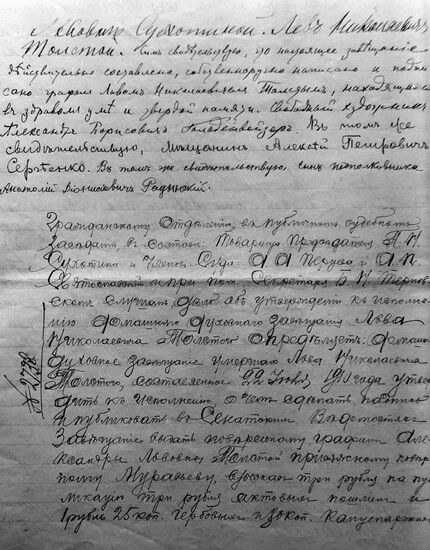 Львовичъ Сухотиной. Левъ Николаевичъ
Толстой. Симъ свидѣтельствую, что настоящее завѣщаніе
дѣйствительно составлено, собственноручно написано и подпи
сано графомъ Львомъ Николаевичемъ Толстымъ, находящимся
въ здравомъ умѣ и твердой памяти. Свободный художникъ
Александръ Борисовичъ Гольденвейзеръ. Въ томъ же
свидѣтельствую, мѣщанинъ Алексѣй Петровичъ
Сергѣенко. Въ томъ же свидѣтельствую, сынъ подполковника
Анатолій Діонисіевичъ Радынскій.
Гражданскому Отдѣленію, въ публичномъ судебномъ
Засѣданіи, въ составѣ: Товарища Предсѣдателя
и Членовъ Суда: А А и А П.
и при пом. Секретаря Б. Н.
слушалъ дѣло объ утвержденіи къ исполне
нію домашняго духовнаго завѣщанія Льва
Николаевича Толстого опредѣляетъ: домашнее
духовное завѣщаніе умершаго Льва Николаевича
Толстого, составленное 22 Іюля 1910 года утвер
дить къ исполненію о чемъ сдѣлать надпись
и публиковать въ Сенатскихъ Вѣдомостяхъ
Завѣщаніе выдать повѣренному графини Але
ксандры Львовны Толстой присяжному повѣрен
ному Муравьеву, взыскавъ три рубля на пу
бликацію три рубля актовыхъ пошлинъ и
1 рубль 25 коп. гербовыхъ и коп. канцелярск